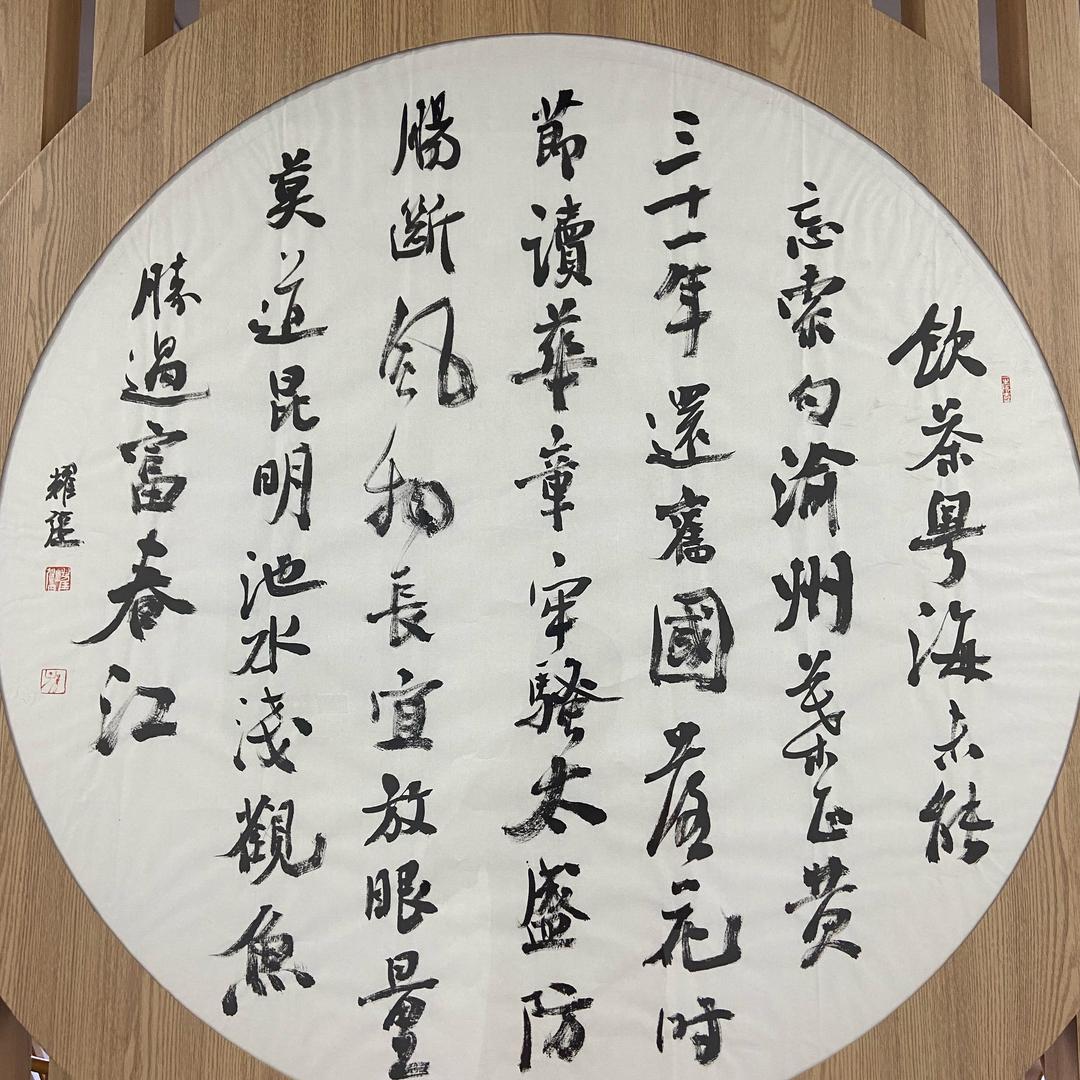 飲茶粤海未能
忘索句渝州葉正黄
三十一年還舊國落花时
節讀華章牢騷太盛防
腸斷風物長宜放眼量
莫道昆明池水淺觀魚
勝過富春江